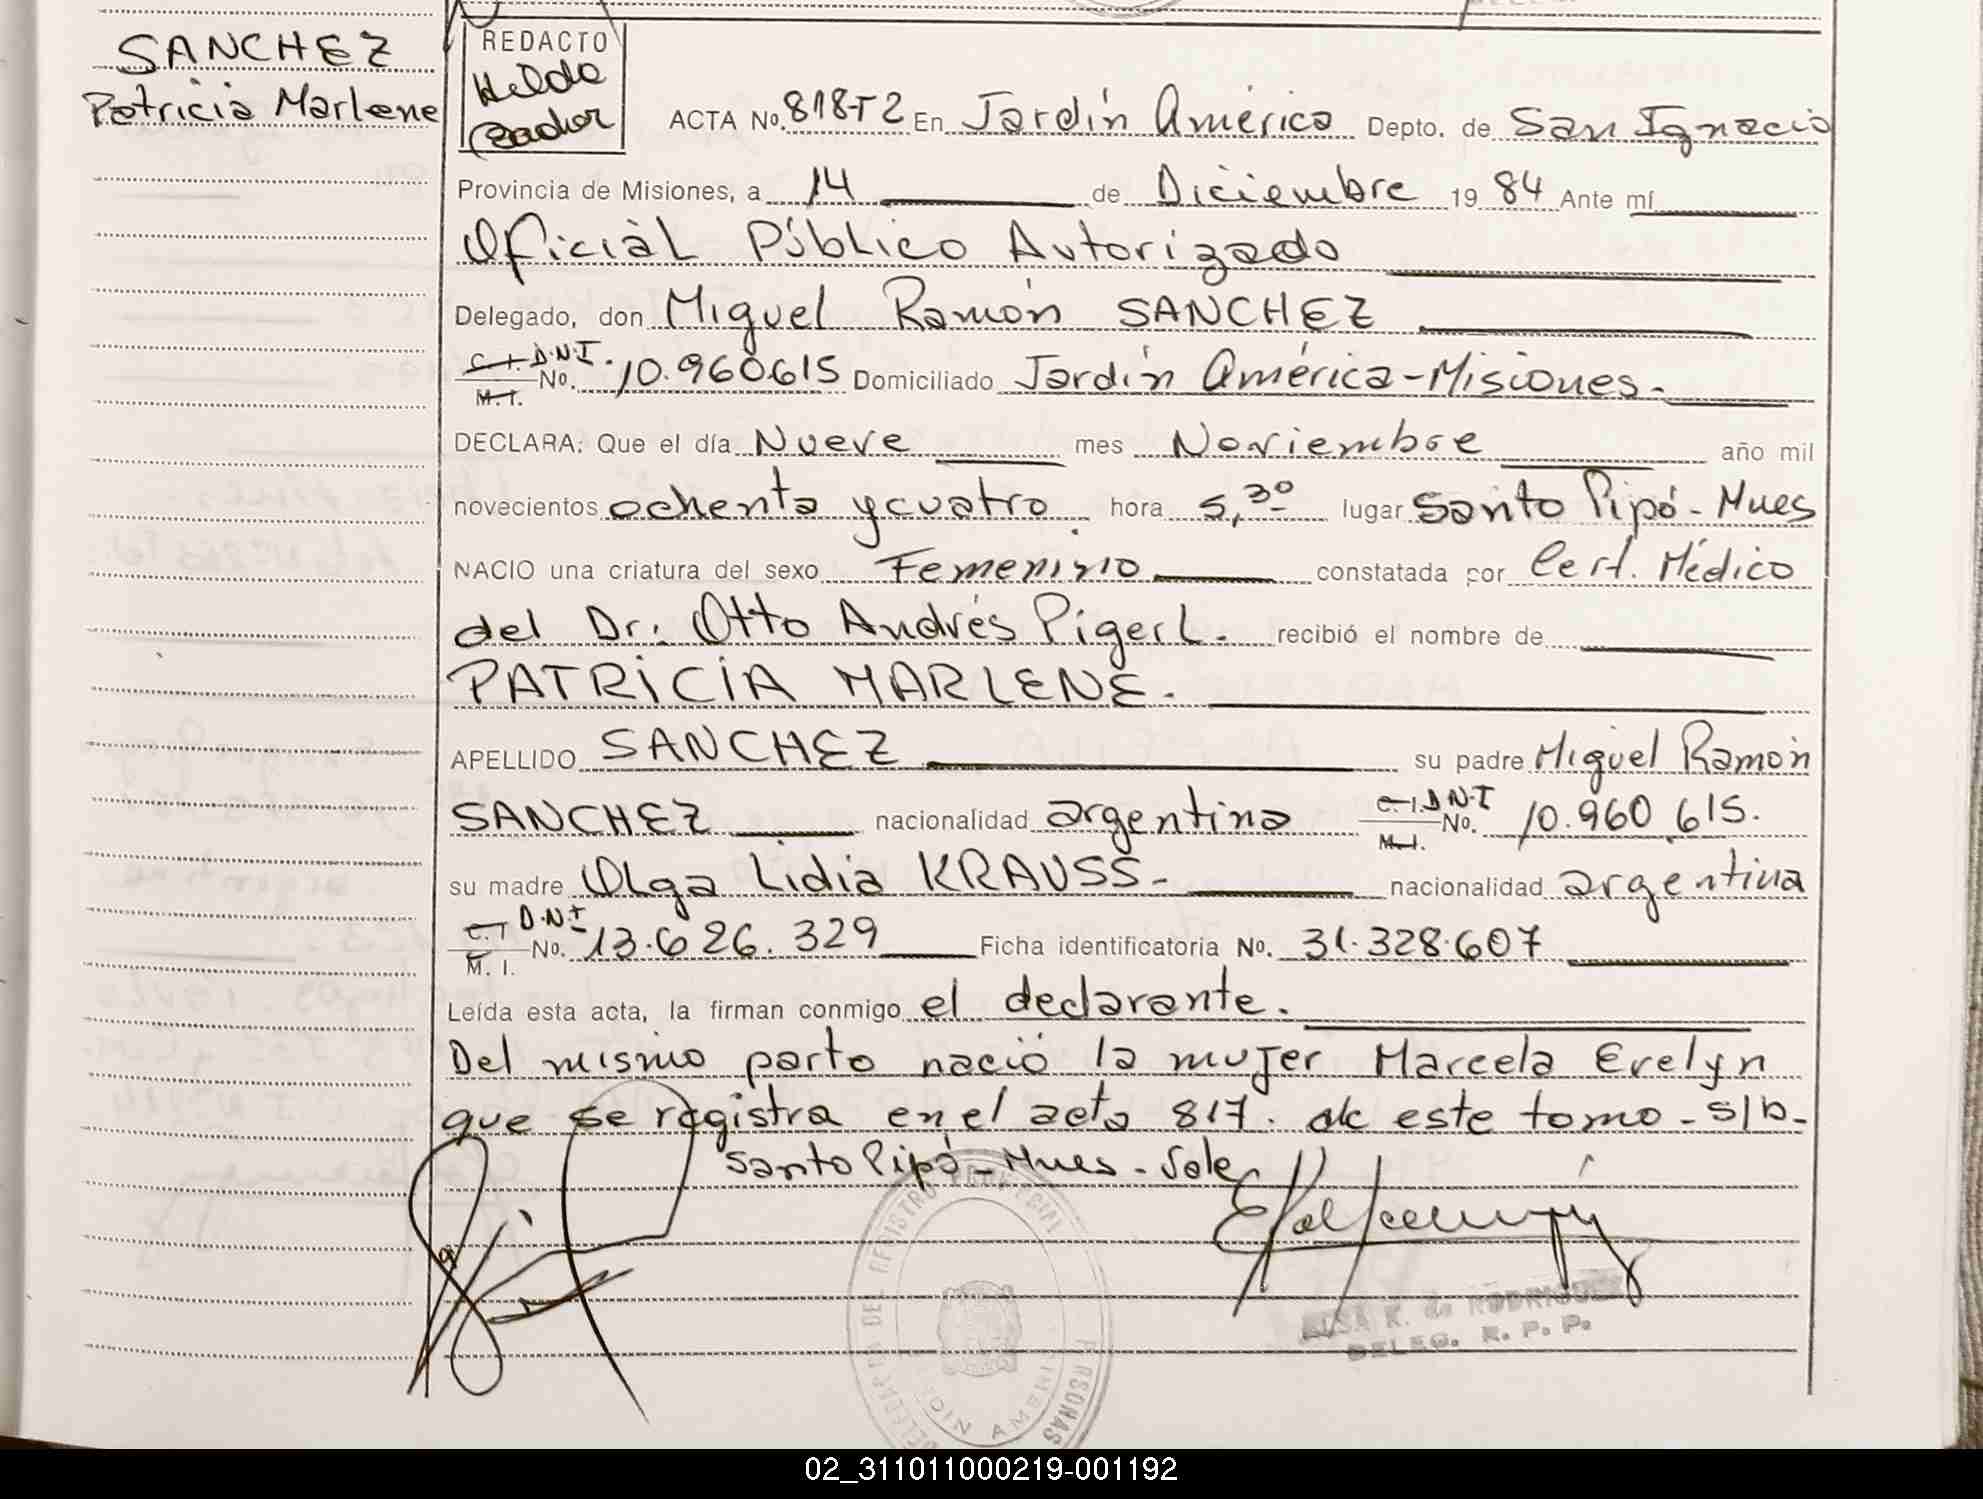 SANCHEZ
Patricia Marlene
REDACTO
Hilda
ACTA No. 818-T2 En Jardín América Depto. de San Ignacio
Provincia de Misiones, a 14 de Diciembre 19 84 Ante mí
Oficial Público Autorizado
Delegado, don Miguel Ramón SANCHEZ
C.I. D.N.I. M.I. No. 10.960.615 Domiciliado Jardín América-Misiones.
DECLARA: Que el día Nueve mes Noviembre año mil
novecientos ochenta y cuatro hora 5,30 lugar Santo Pipó - Mnes
NACIO una criatura del sexo Femenino constatada por Cert. Médico
del Dr. Otto Andrés Pigerl. recibió el nombre de
PATRICIA MARLENE.
APELLIDO SANCHEZ su padre Miguel Ramón
SANCHEZ nacionalidad argentina C.I. D.N.I M.I. No. 10.960.615.
su madre Olga Lidia KRAUSS- nacionalidad argentina
C.I D.N.I M. I. No. 13.626.329 Ficha identificatoria No. 31.328.607
Leída esta acta, la firman conmigo el declarante.
Del mismo parto nació la mujer Marcela Evelyn
que se registra en el acta 817. de este tomo - s/b-
Santo Pipó - Mnes - Vale
DELEGACION DEL REGISTRO PROVINCIAL PERSONAS
JARDIN AMERICA
ELSA K. de RODRIGUEZ
DELEG. R. P. P.
02_311011000219-001192